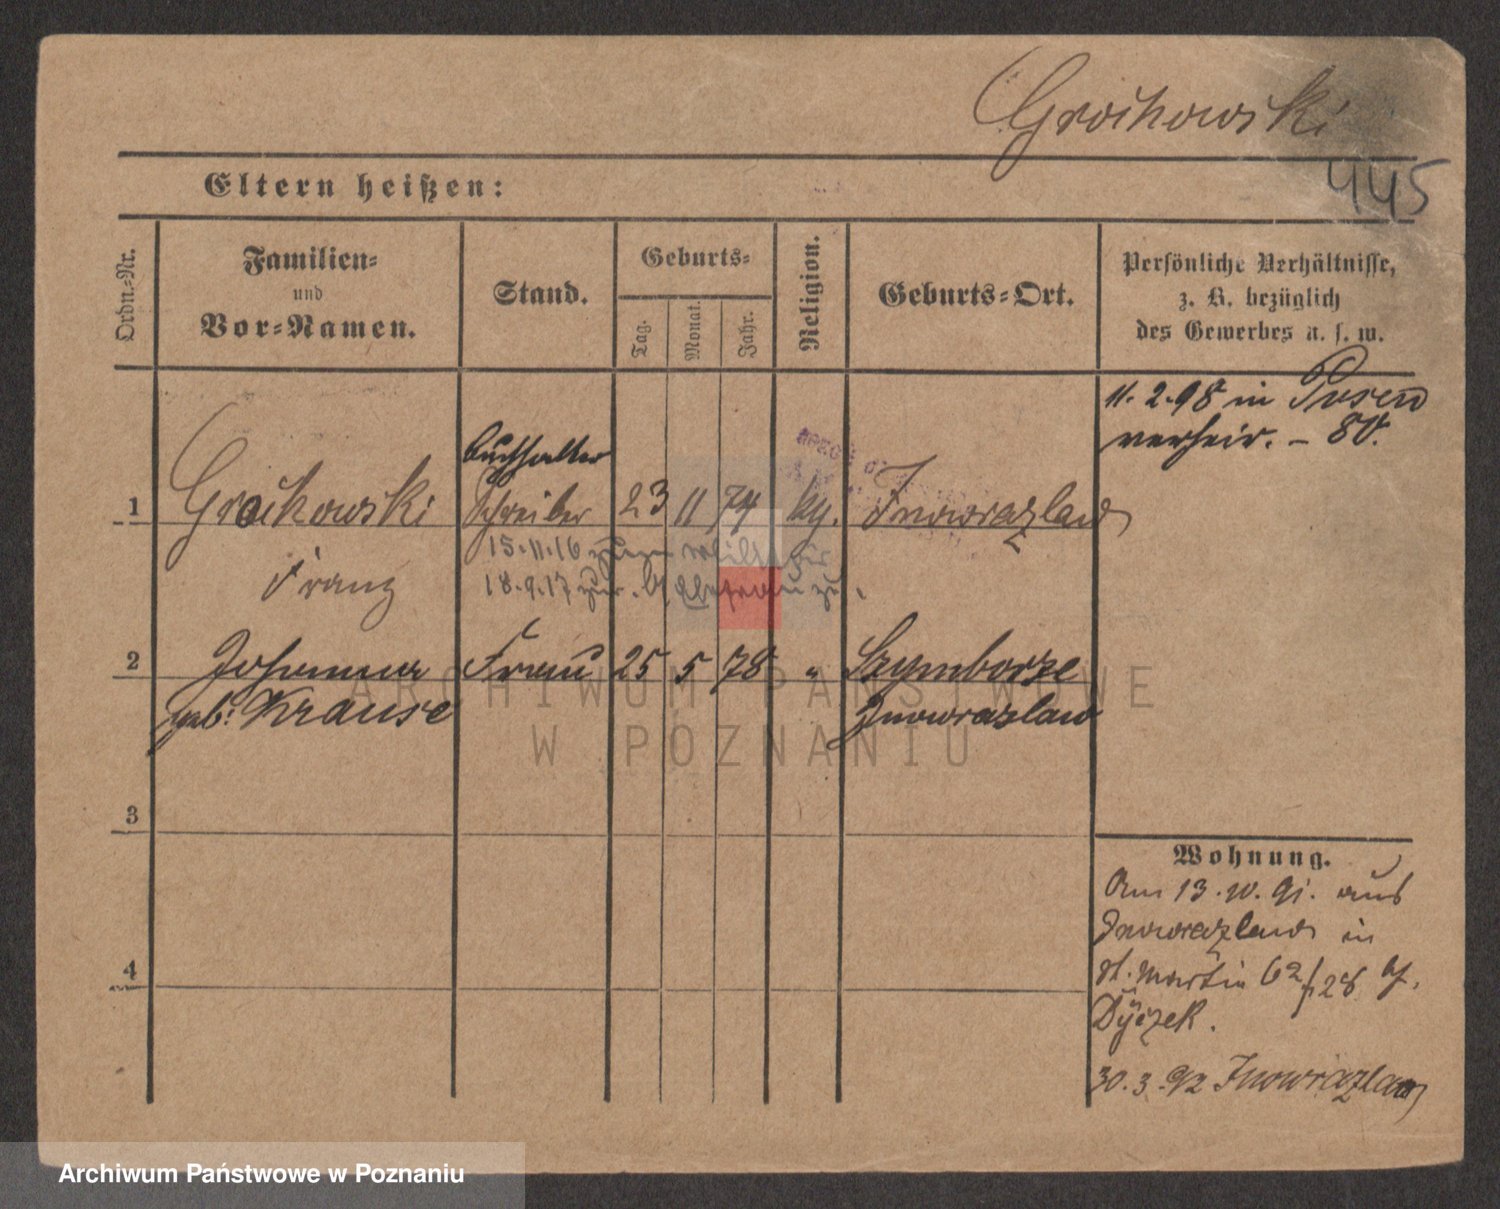 Grochowski
445
Eltern heißen:
Ordn.-Nr.
Familien-
und
Vor-Namen.
Stand.
Geburts-
Tag.
Monat.
Jahr.
Religion.
Geburts-Ort.
Persönliche Verhältnisse,
z. B. bezüglich
des Gewerbes u. s. w.
11. 2. 98 in Posen
verheir. – 80.
Buchhalter
1 Grochowski Schreiber 23 11 74 kg. Inowrazlaw
Franz
15.11.16
18.9.17 zur
2 Johanna Frau 25 5 78 " Szymborze
geb. Krause Inowrazlaw
3
4
Wohnung.
Am 13.10.91. aus
Inowrazlaw in
St. Martin 62/28 b/.
30.3.92 Inowrazlaw
ARCHIWUM PAŃSTWOWE
W POZNANIU
Archiwum Państwowe w Poznaniu